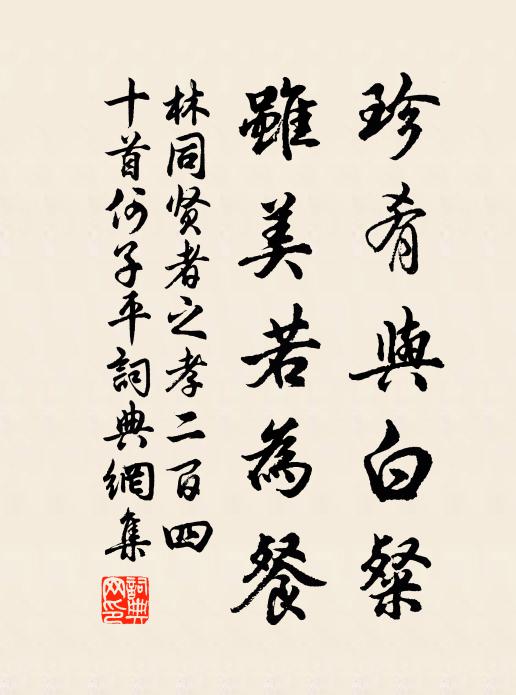 珍肴與白粲
雖美若為餐
林同贤者之孝二百四
十首何子平詞典網集
詞典
网印